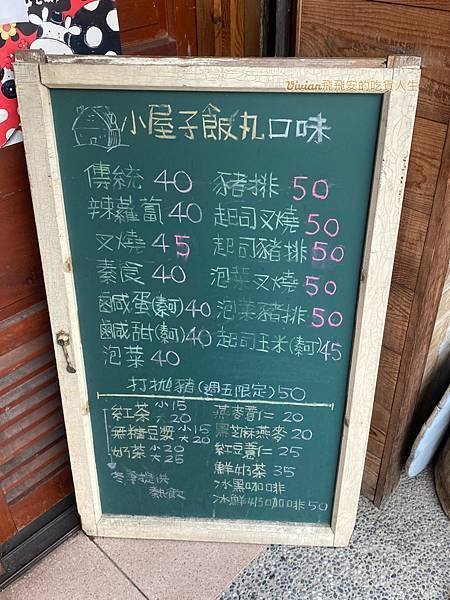 Vivian飛飛安的吃貨人生
小屋子飯丸口味
傳統 40 豬排 50
辣蘿蔔 40 起司叉燒 50
叉燒 45 起司豬排 50
素食 40 泡菜叉燒 50
鹹蛋(素可) 40 泡菜豬排 50
鹹甜(素可) 40 起司玉米(素可) 45
泡菜 40
打拋豬(週五限定) 50
紅茶 小15 大20
無糖豆漿 小15 大20
奶茶 小20 大25
冬季提供
熱飲
燕麥薏仁 20
黑芝麻燕麥 20
紅豆薏仁 25
鮮奶茶 35
冰黑咖啡
冰鮮奶咖啡 50